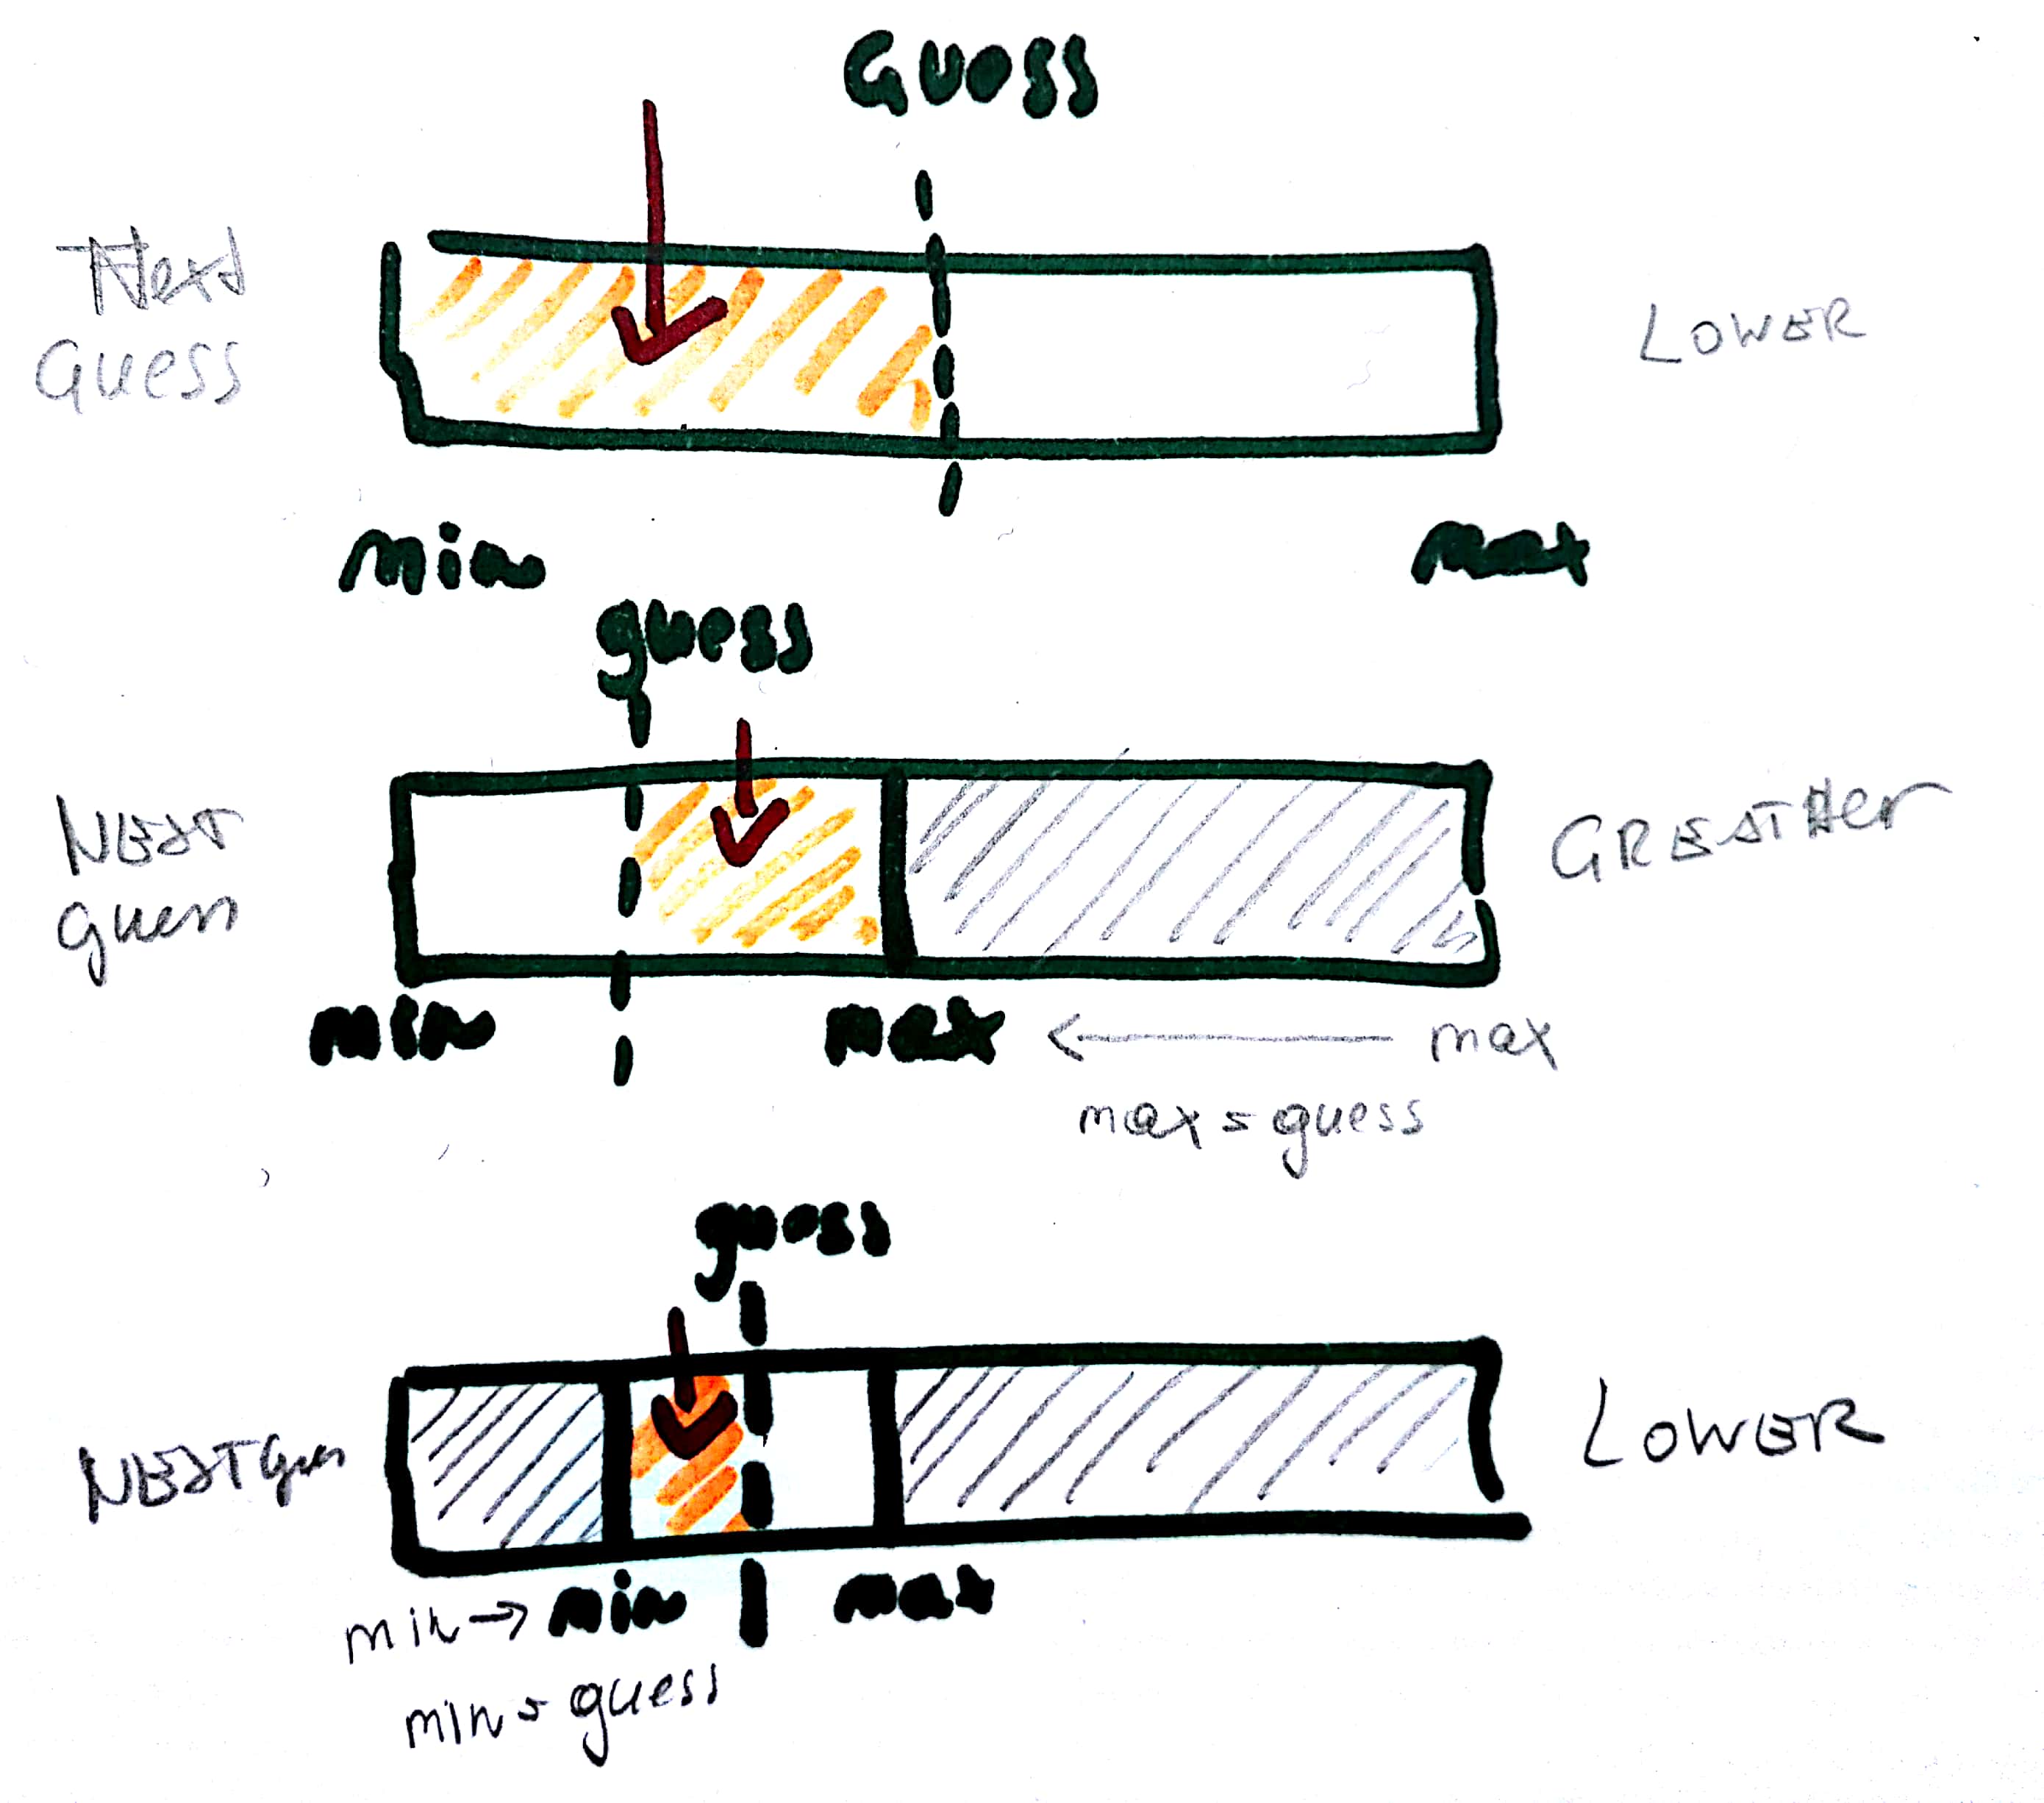 Guess
Next
Guess
LOWER
min max
guess
NEXT
guess
GREATHER
min max ← max
max = guess
guess
NEXT Guess
LOWER
min → min max
min = guess